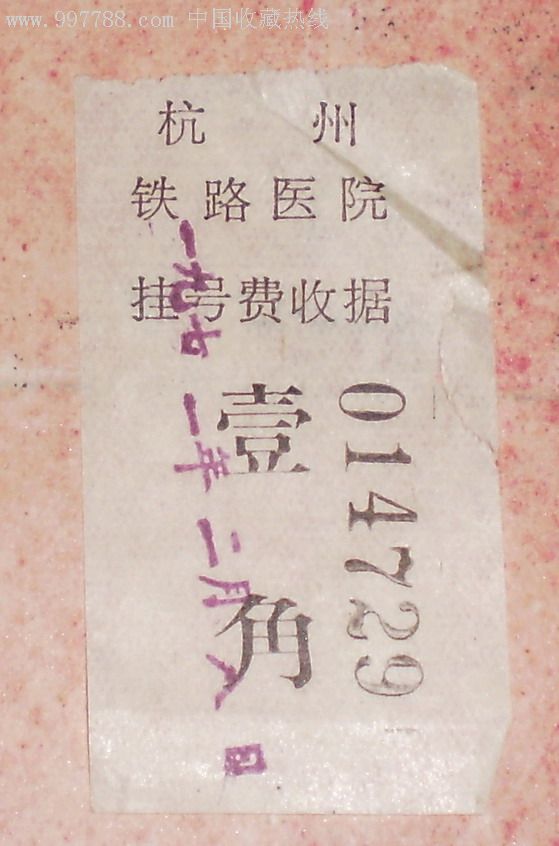 www.997788.com 中国收藏热线
杭州
铁路医院
挂号费收据
壹角
014729
一九七一年二月八日